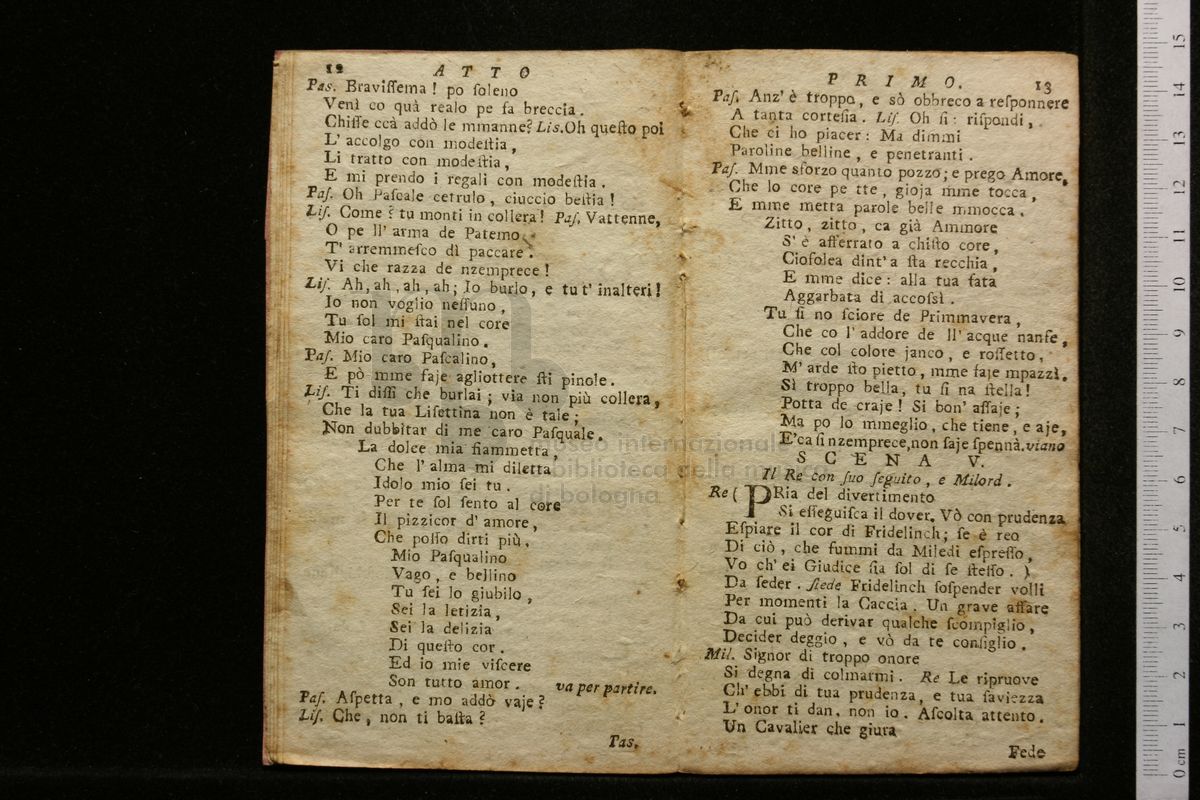 12 ATTO
Pas. Braviſſema! po ſoleno
Venì co quà realo pe fa breccia.
Chiſſe ccà addò le mmanne? Lis. Oh queſto poi
L' accolgo con modeſtia,
Li tratto con modeſtia,
E mi prendo i regali con modeſtia.
Paſ. Oh Paſcale cetrulo, ciuccio beſtia!
Liſ. Come? tu monti in collera! Paſ. Vattenne,
O pe ll' arma de Patemo
T' arremmeſco dì paccare.
Vi che razza de nzemprece!
Liſ. Ah, ah, ah, ah; Io burlo, e tu t' inalteri!
Io non voglio neſſuno,
Tu ſol mi ſtai nel core
Mio caro Paſqualino.
Paſ. Mio caro Paſcalino,
E pò mme faje agliottere ſti pinole.
Liſ. Ti diſſi che burlai; via non più collera,
Che la tua Liſettina non è tale;
Non dubbitar di me caro Paſquale.
La dolce mia fiammetta,
Che l' alma mi diletta
Idolo mio ſei tu.
Per te ſol ſento al core
Il pizzicor d' amore,
Che poſſo dirti più.
Mio Paſqualino
Vago, e bellino
Tu ſei lo giubilo,
Sei la letizia,
Sei la delizia
Di queſto cor.
Ed io mie viſcere
Son tutto amor. va per partire.
Paſ. Aſpetta, e mo addò vaje?
Liſ. Che, non ti baſta?
Pas.
PRIMO. 13
Paſ. Anz' è troppo, e sò obbreco a reſponnere
A tanta corteſia. Liſ. Oh ſì: riſpondi,
Che ci ho piacer: Ma dimmi
Paroline belline, e penetranti.
Paſ. Mme sforzo quanto pozzo; e prego Amore,
Che lo core pe tte, gioja mme tocca,
E mme metta parole belle mmocca.
Zitto, zitto, ca già Ammore
S' è afferrato a chiſto core,
Cioſolea dint' a ſta recchia,
E mme dice: alla tua fata
Aggarbata dì accoſsì.
Tu ſi no ſciore de Primmavera,
Che co l' addore de ll' acque nanfe,
Che col colore janco, e roſſetto,
M' arde ſto pietto, mme faje mpazzì.
Sì troppo bella, tu ſi na ſtella!
Potta de craje! Si bon' aſſaje;
Ma po lo mmeglio, che tiene, e aje,
E' ca ſi nzemprece, non ſaje ſpennà. viano
SCENA V.
Il Re con ſuo ſeguito, e Milord.
Re ( PRia del divertimento
Si eſſeguiſca il dover. Vò con prudenza
Eſpiare il cor di Fridelinch; ſe è reo
Di ciò, che fummi da Miledi eſpreſſo,
Vo ch' ei Giudice ſia ſol di ſe ſteſſo. )
Da ſeder. ſiede Fridelinch ſoſpender volli
Per momenti la Caccia. Un grave affare
Da cui può derivar qualche ſcompiglio,
Decider deggio, e vò da te conſiglio.
Mil. Signor di troppo onore
Si degna di colmarmi. Re Le ripruove
Ch' ebbi di tua prudenza, e tua ſaviezza
L' onor ti dan, non io. Aſcolta attento.
Un Cavalier che giura
Fede
museo internazionale
biblioteca della musica
di bologna
15
14
13
12
11
10
9
8
7
6
5
4
3
2
1
0 cm